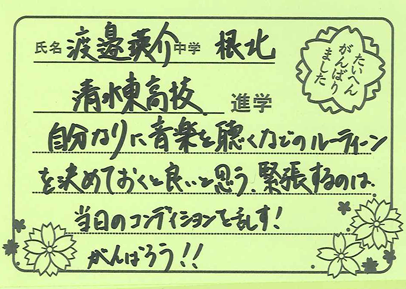 氏名 渡邉瑛介 中学 根北
清水東高校 進学
たいへん
がんばり
ました
自分なりに音楽を聴くなどのルーティーン
を決めておくと良いと思う.緊張するのは
当日のコンディションを乱す!
がんばろう!!